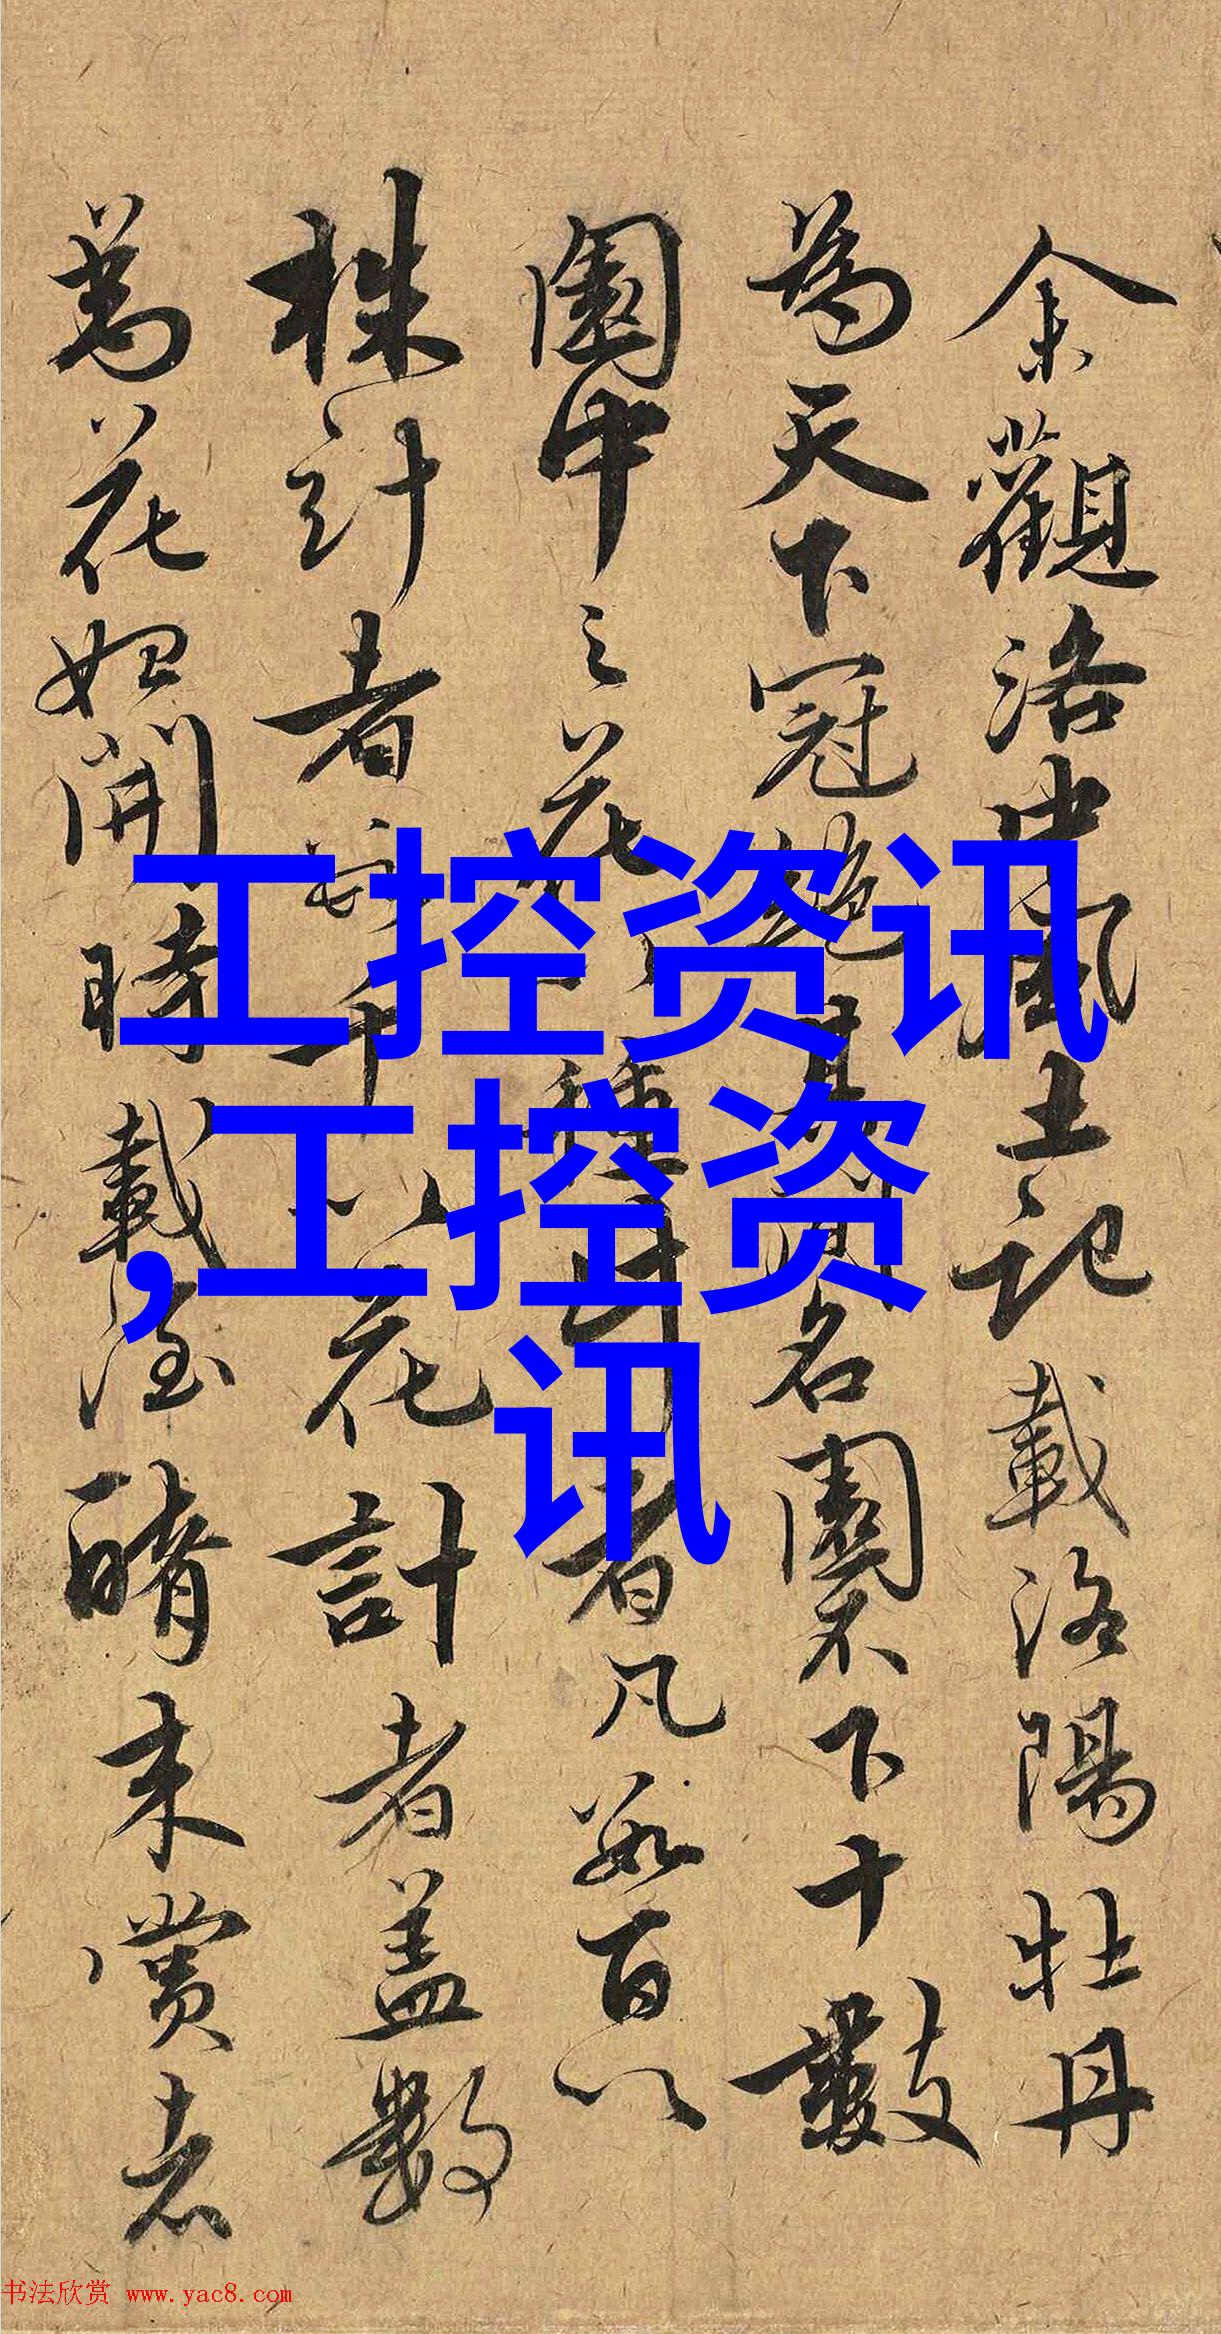 余觀洛中風土記載洛陽牡丹
為天下冠
名園不下十數
園中之花
者凡數百以
株計者
千以花計者蓋數
萬花如開時載酒醅来賞者
工控资讯
,工控资
讯
书法欣赏 www.yac8.com